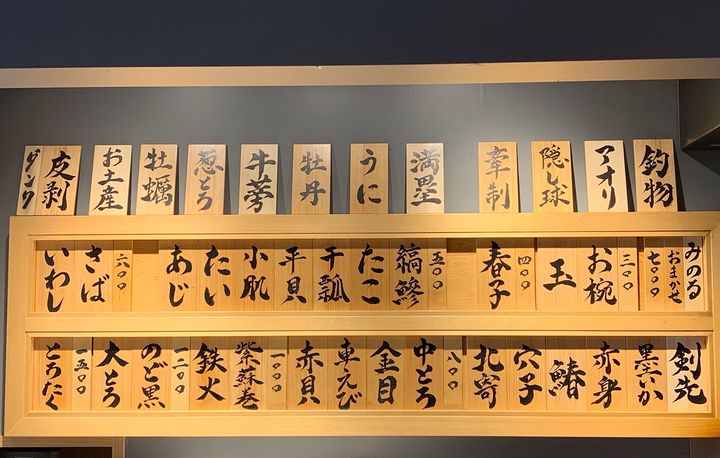 釣物
アオリ
隠し球
牽制
満塁
うに
牡丹
牛蒡
葱とろ
牡蠣
お土産
皮剥
ダンク
みのる
おまかせ
七〇〇〇
三〇〇
お椀
玉
四〇〇
春子
五〇〇
縞鯵
たこ
干瓢
平貝
小肌
たい
あじ
六〇〇
さば
いわし
剣先
墨いか
赤身
鰆
穴子
北寄
八〇〇
中とろ
金目
車えび
赤貝
一〇〇〇
紫蘇巻
鉄火
一二〇〇
のど黒
大とろ
一五〇〇
とろたく